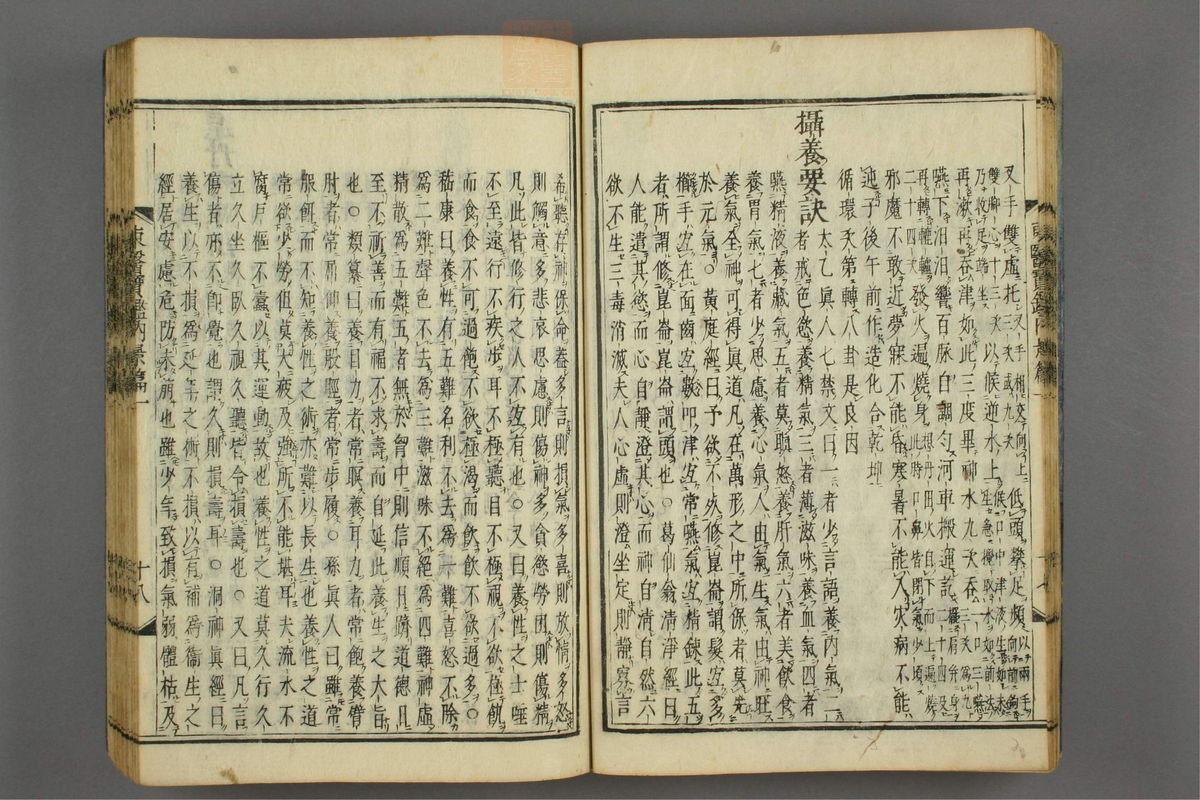 叉手雙虛托三次或九次叉手相交向上低頭攀足頻以兩手向前鉤
雙脚心十三次乃收足端坐以候逆水上候口中津液生如未生急攪取水如前法
再漱再吞津如此三度畢神水九次吞一口三嚥三次爲九
嚥下汨汨響百脉自調勻河車搬運訖擺肩并身二十四及
再轉轆轤二十四次發火遍燒身想丹田火自下而上遍燒此時口鼻皆閉氣少頃
邪魔不敢近夢寐不能昏寒暑不能入灾病不能
迍子後午前作造化合乾坤
循環次第轉八卦是良因
攝養要訣
太乙眞人七禁文曰一者少言語養内氣二
者戒色慾養精氣三者薄滋味養血氣四者
嚥精液養藏氣五者莫嗔怒養肝氣六者美飮食
養胃氣七者少思慮養心氣人由氣生氣由神旺
養氣全神可得眞道凡在萬形之中所保者莫先
於元氣○黃庭經曰子欲不死修崑崙謂髮宜多
櫛手宜在面齒宜數叩津宜常嚥氣宜精鍊此五
者所謂修崑崙崑崙謂頭也○葛仙翁淸淨經曰
人能遣其慾而心自靜澄其心而神自淸自然六
欲不生三毒消滅夫人心虛則澄坐定則靜寡言
東醫寶鑑内景篇一
十七
希聽存神保命盖多言則損氣多喜則放情多怒
則觸意多悲哀思慮則傷神多貪慾勞困則傷精
凡此皆修行之人不宜有也○又曰養性之士唾
不至遠行不疾步耳不極聽目不極視不欲極飢
而食食不可過飽不欲極渴而飮飮不欲過多○
嵇康曰養性有五難名利不去爲一難喜怒不除
爲二難聲色不去爲三難滋味不絕爲四難神虛
精散爲五難五者無於胷中則信順日隮道德日
至不祈善而有福不求壽而自延此養生之大旨
也○類纂曰養目力者常瞑養耳力者常飽養臂
肘者常屈伸養股脛者常步履○孫眞人曰雖常
服餌而不知養性之術亦難以長生也養性之道
常欲少勞但莫大疲及強所不能堪耳夫流水不
腐戶樞不蠹以其運動故也養性之道莫久行久
立久坐久臥久視久聽皆令損壽也○又曰凡言
傷者亦不卽覺也謂久則損壽耳○洞神眞經曰
養生以不損爲延年之術不損以有補爲衞生之
經居安慮危防未萌也雖少年致損氣弱體枯及
東醫寶鑑内景篇一
十八